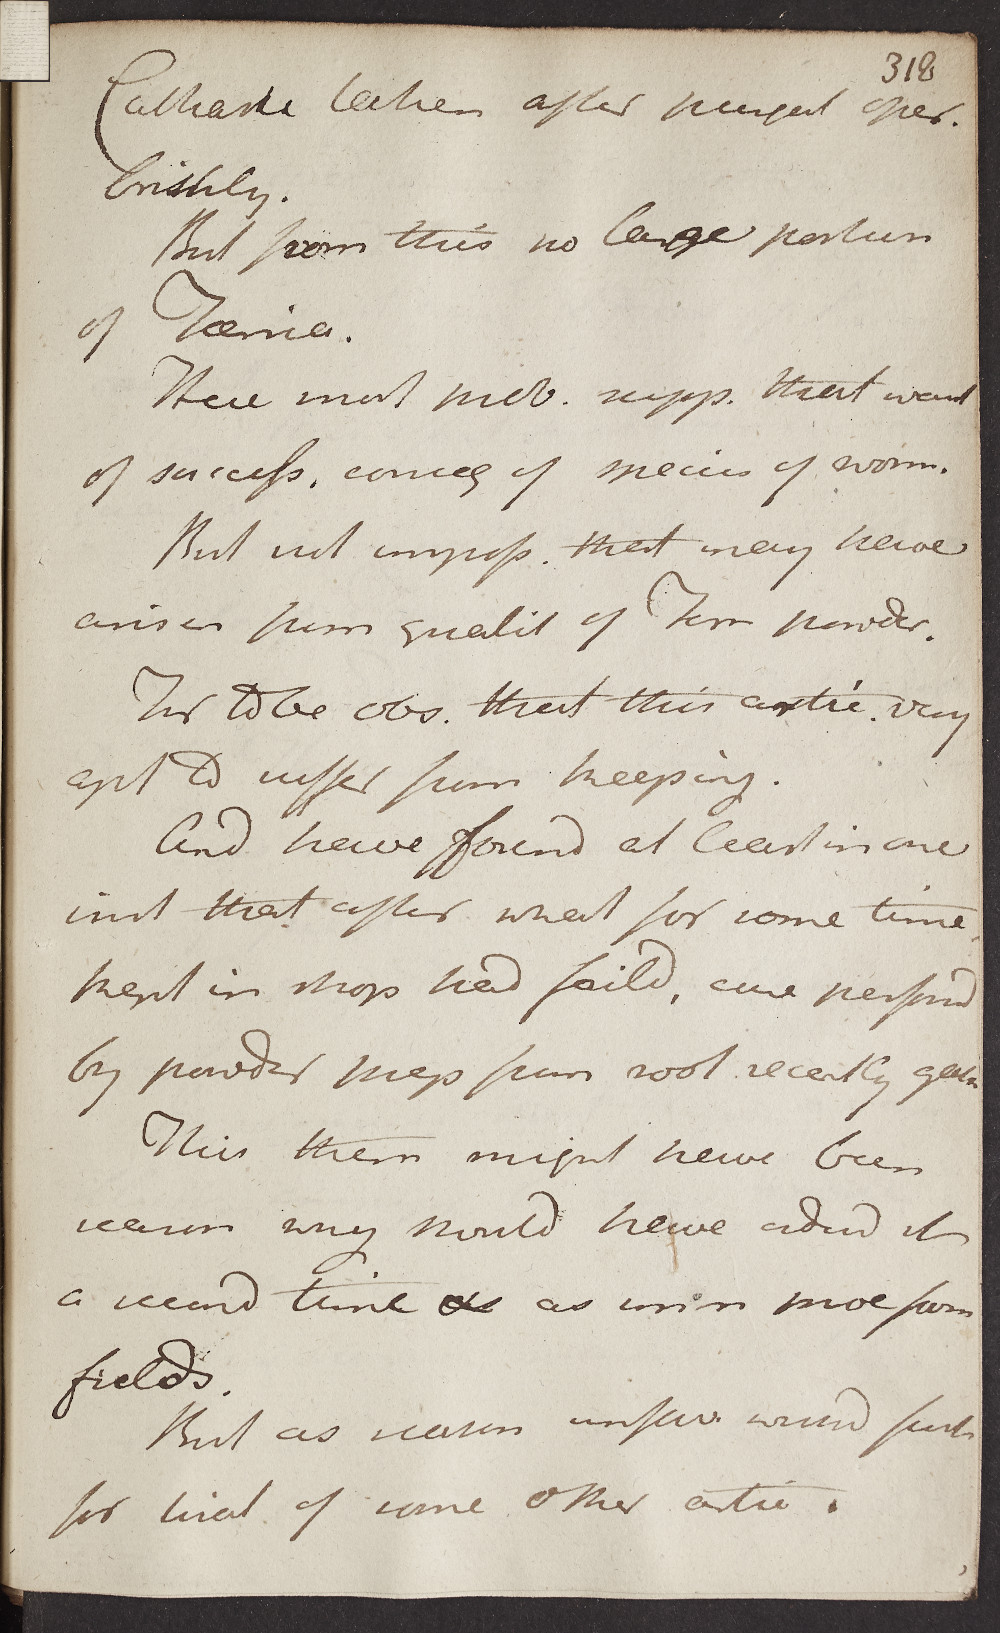 318
Cathartic taken after purged oper.
briskly.
But from this no large portion
of Tænia.
Here most prob. supp. that want
of success. comes of species of worm.
But not imposs. that may have
arisen from qualit of Fern powder.
For to be obs. that this artic. very
apt to suffer from keeping.
And have found at least in one
inst that after what for some time
kept in shops had faild, cure perfond
by powder prep from root recently
This then might have been
reason why should have adud it
a second time as from
fields.
But as season unfav. would
for trial of some other artic.